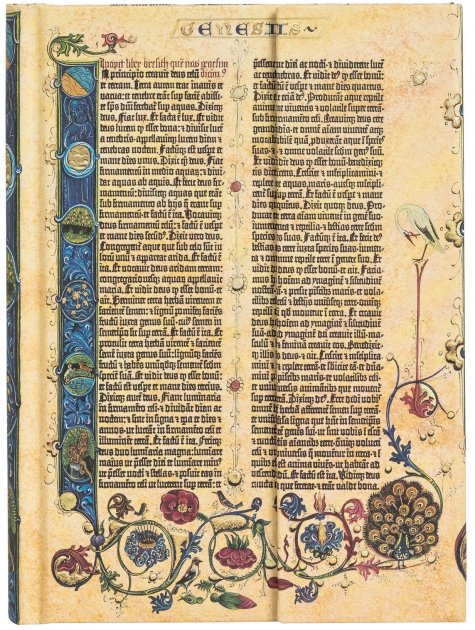 GENESIS
Incipit liber bresith quē nos genesim
In principio creauit deus celū dicim⁹
et terram. Terra autem erat inanis et
vacua: et tenebre erant sup faciē abissi:
et spūs dñi ferebat̃ sup aquas. Dixitq̃
deus. Fiat lux. Et facta ē lux. Et vidit
deus lucem ꝙ esset bona: et diuisit lucē
a tenebris· appellauitq̃ lucem diem et
tenebras noctem. Factūq̃ est vespe et
mane dies unus. Dixit q̃ deus. Fiat
firmamentū in medio aquaꝝ: et diui-
dat aquas ab aquis. Et fecit deus fir-
mamentū: diuisitq̃ aquas que erāt
sub firmamento ab hijs q̃ erant sup
firmamentū: et factū ē ita. Vocauitq̃
deus firmamentū celū: et factū ē vespe
et mane dies secūd⁹. Dixit vero deus.
Congregent̃ aque que sub celo sūt in
locū unū et appareat arida. Et factū ē
ita. Et vocauit deus aridam terram:
congregacionesq̃ aquaꝝ appellauit
maria. Et vidit deus ꝙ esset bonū et
ait. Germinet terra herbā virentem et
facientē semen: et lignū pomiferū faciēs
fructū iuxta genus suū· cui⁹ semen in
semetipso sit sup terrā. Et factū ē ita. Et
protulit terra herbā virentē et facientē
semē iuxta genus suū: lignūq̃ faciēs
fructū et habēs unūqdq̃ sementē scdm
speciē suā. Et vidit deus ꝙ esset bonū:
et factū est vespe et mane dies tercius.
Dixitq̃ autē deus. Fiant luminaria
in firmamēto celi· et diuidāt diem ac
noctem: et sint in signa et tpa et dies et
annos: ut luceāt in firmamēto celi et
illuminēt terrā. Et factū ē ita. Fecitq̃
deus duo luminaria magna: luminare
maius ut p̄esset diei et luminare min⁹
ut p̄esset nocti: et stellas· et posuit eas in
firmamēto celi ut lucerent sup terrā: et
p̄essent diei ac nocti· et diuiderent lucē
ac tenebras. Et vidit de⁹ ꝙ esset bonū:
et factū ē vespe et mane dies quartus.
Dixit eciā de⁹. Producant aque reptile
anime viuentis et volatile super terrā·
sub firmamento celi. Creauitq̃ deus cete
grandia· et omnē aīam viuentē atq̃
motabilē quā produxerāt aque ī speci̅es
suas· et omne volatile scdm gen⁹ suū.
Et vidit deus ꝙ esset bonū· benedixitq̃
eis dicens. Crescite et multiplicamini· et
replete aquas maris· auesq̃ multipli-
cent̃ sup terrā. Et factū ē vespe et mane
dies quintus. Dixit quoq̃ deus. Pro-
ducat terra aīam viuentē in gene̅ suo·
iumenta et reptilia· et bestias terre scdm
species suas. Factūq̃ ē ita. Et fecit de⁹
bestias terre iuxta species suas· iumen-
ta et omne reptile terre ī genere suo. Et
vidit deus ꝙ esset bonū· et ait. Facia-
mus hoīem ad ymaginē et silitudinē
nostrā· et p̄sit piscib⁹ maris· et vola-
tilib⁹ celi et bestijs uniuseq̃ terre· omniq̃
reptili qd mouet̃ ī terra. Et creauit
deus hoīem ad ymaginē et silitudinē
suā· ad ymaginē dei creauit illū· ma-
sculū et feminā creauit eos. Benedixit-
q̃ illis deus· et ait. Crescite et multiplica-
mini et replete terrā· et sbicite eā· et dña-
mini piscib⁹ maris· et volatilib⁹ celi·
et uniuersis animātib⁹ que mouent̃
sup terrā. Dixitq̃ de⁹. Ecce dedi vobis
omnē herbā afferentē semen sup terrā·
et uniūsa ligna que hñt in semetipsis
sementē gene̅is sui· ut sint vobis ī escā·
et cunctis aīantib⁹ terre· omniq̃ volucri
celi et uniuersis q̃ mouent̃ in terra· et ī
quib⁹ est anima viuēs· ut habeāt ad
vescendū. Et factū est ita. Viditq̃ deus
cuncta que fecerat· et erāt valde bona.